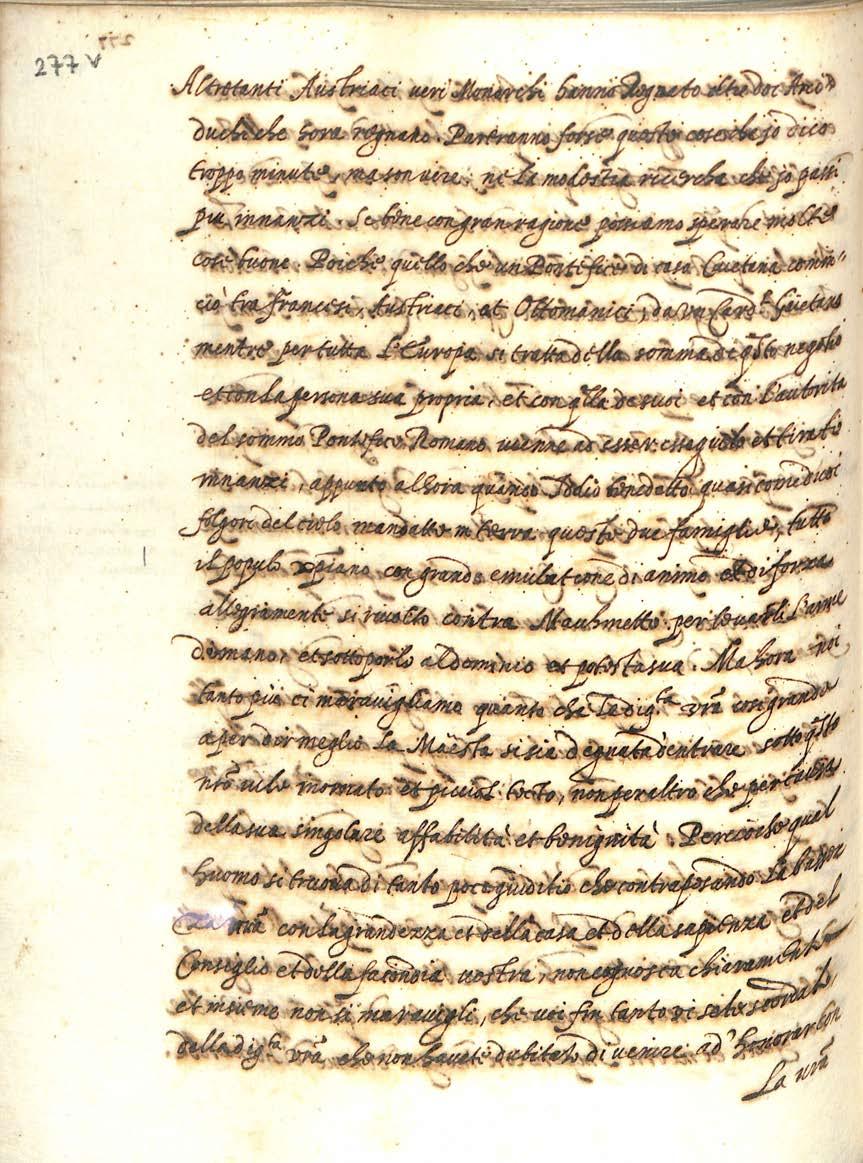 277 v
Altretanti Austriaci veri Monarchi hanno Regnato oltre doi Arci=
duchi che hora regnano. Pareranno forse queste cose ch'io dico
troppo minute, ma son vere, ne la modestia ricerca che io passi
più innanzi. Se bene con gran ragione possiamo sperare molte
cose buone. Poiche quello che un Pontefice di casa Caietana comin=
ciò tra francesi, Austriaci, et Ottomanici, da un Card.l Gaietano
mentre per tutta L'Europa si tratta della somma de q̃sto negotio
et con la persona sua propria, et con q̃lla de suoi et con l'autorita
del sommo Pontefice Romano venne ad esser esseguito et tirato
innanzi, appunto alhora quando Iddio benedetto quasi come dicoi
folgori del cielo mandatte in terra queste due famiglie, tutto
il populo xp̃iano con grande emulatione di animo et di forza
allegramente si rivolto contra Mauhmetto per levarli l'arme
di mano, et sottoporlo al dominio et potesta sua. Ma hora noi
tanto più ci maravigliamo quanto che la dig.ta vr̃a cosi grande
o per dir meglio La Maesta si sia degnata d'entrare sotto q̃sto
nr̃o vile inornato et picciol tecto, non per altro che per
della sua singolare affabilità et benignità. Percioche qual
huomo si truova di tanto poco giuditio che contrapesando La
vr̃a con la grandezza et della casa et della sapienza et del
Consiglio et della facondia vostra, non cognosca chiaramente
et insieme non si maravigli, che voi fin tanto vi sete scordato
della dig.ta vr̃a che non havete dubitato di venire ad honorar con
La vr̃a